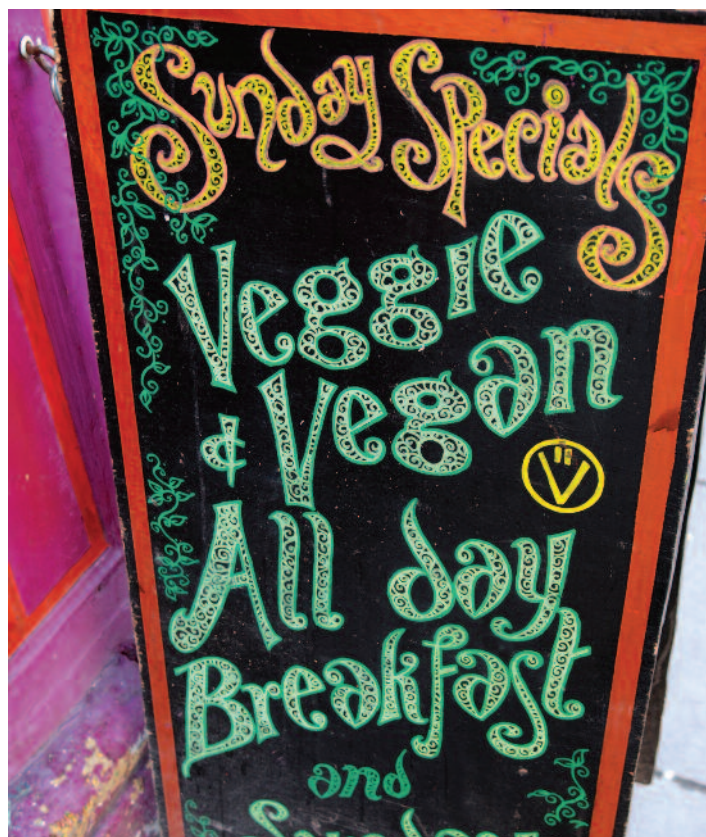 Sunday Specials
Veggie
& Vegan
V
All day
Breakfast
and
Sunday